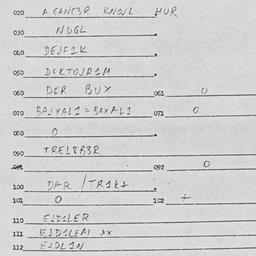 020 A CANC3R KNOJL HUR
030 NUGL
040 DEJF1K
050 DOKTOJR1M
060 DER BUY 061 O
070 BAJYAL1 = BAXAL1 071 O
080 O
090 TREL8B3R
091 092 O
100 DAR / TR1K1
101 O 102 +
110 EJD1LER
111 EJD1LEAI xx
112 EJDL1N